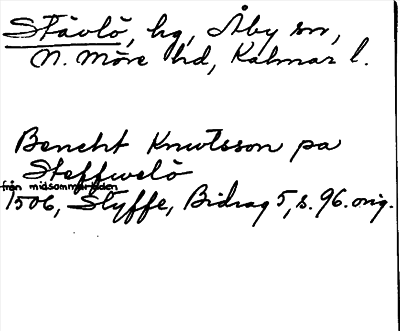 Stävlö, hg, Åby sn,
N. Möre hd, Kalmar l.
Bencht Knutsson pa
Steffwelö
från midsommartiden
1506, Styffe, Bidrag 5, s. 96. orig.